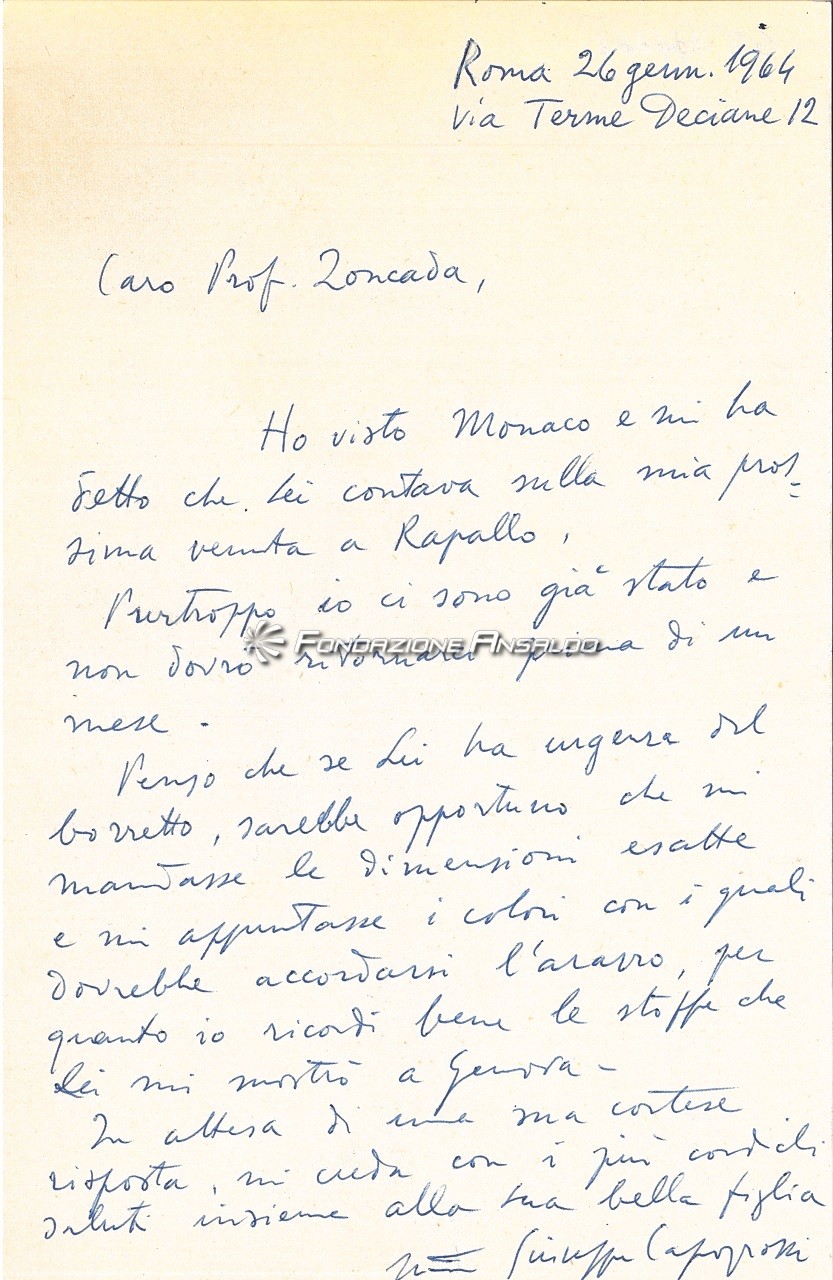 Roma 26 genn. 1964
Via Terme Deciane 12
Caro Prof. Zoncada,
Ho visto Monaco e mi ha
detto che Lei contava sulla mia pros=
sima venuta a Rapallo.
Purtroppo io ci sono già stato e
FONDAZIONE ANSALDO
non dovrò ritornarci prima di un
mese.
Penso che se Lei ha urgenza del
bozzetto, sarebbe opportuno che mi
mandasse le dimensioni esatte
e mi appuntasse i colori con i quali
dovrebbe accordarsi l'arazzo, per
quanto io ricordi bene le stoffe che
Lei mi mostrò a Genova -
In attesa di una sua cortese
risposta, mi creda con i più cordiali
saluti insieme alla sua bella figlia
Giuseppe Capogrossi